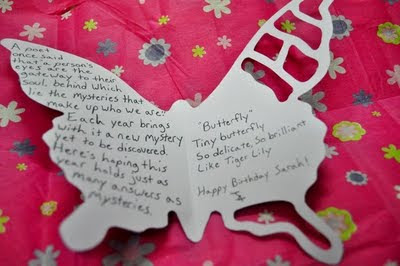 A poet
once said
that a person's
eyes are the
gateway to their
soul, behind which
lie the mysteries that
make up who we are.
Each year brings
with it a new mystery
yet to be discovered.
Here's hoping this
year holds just as
many answers as
mysteries.
"Butterfly"
Tiny butterfly
So delicate, so brilliant
Like Tiger Lily
Happy Birthday Sarah!